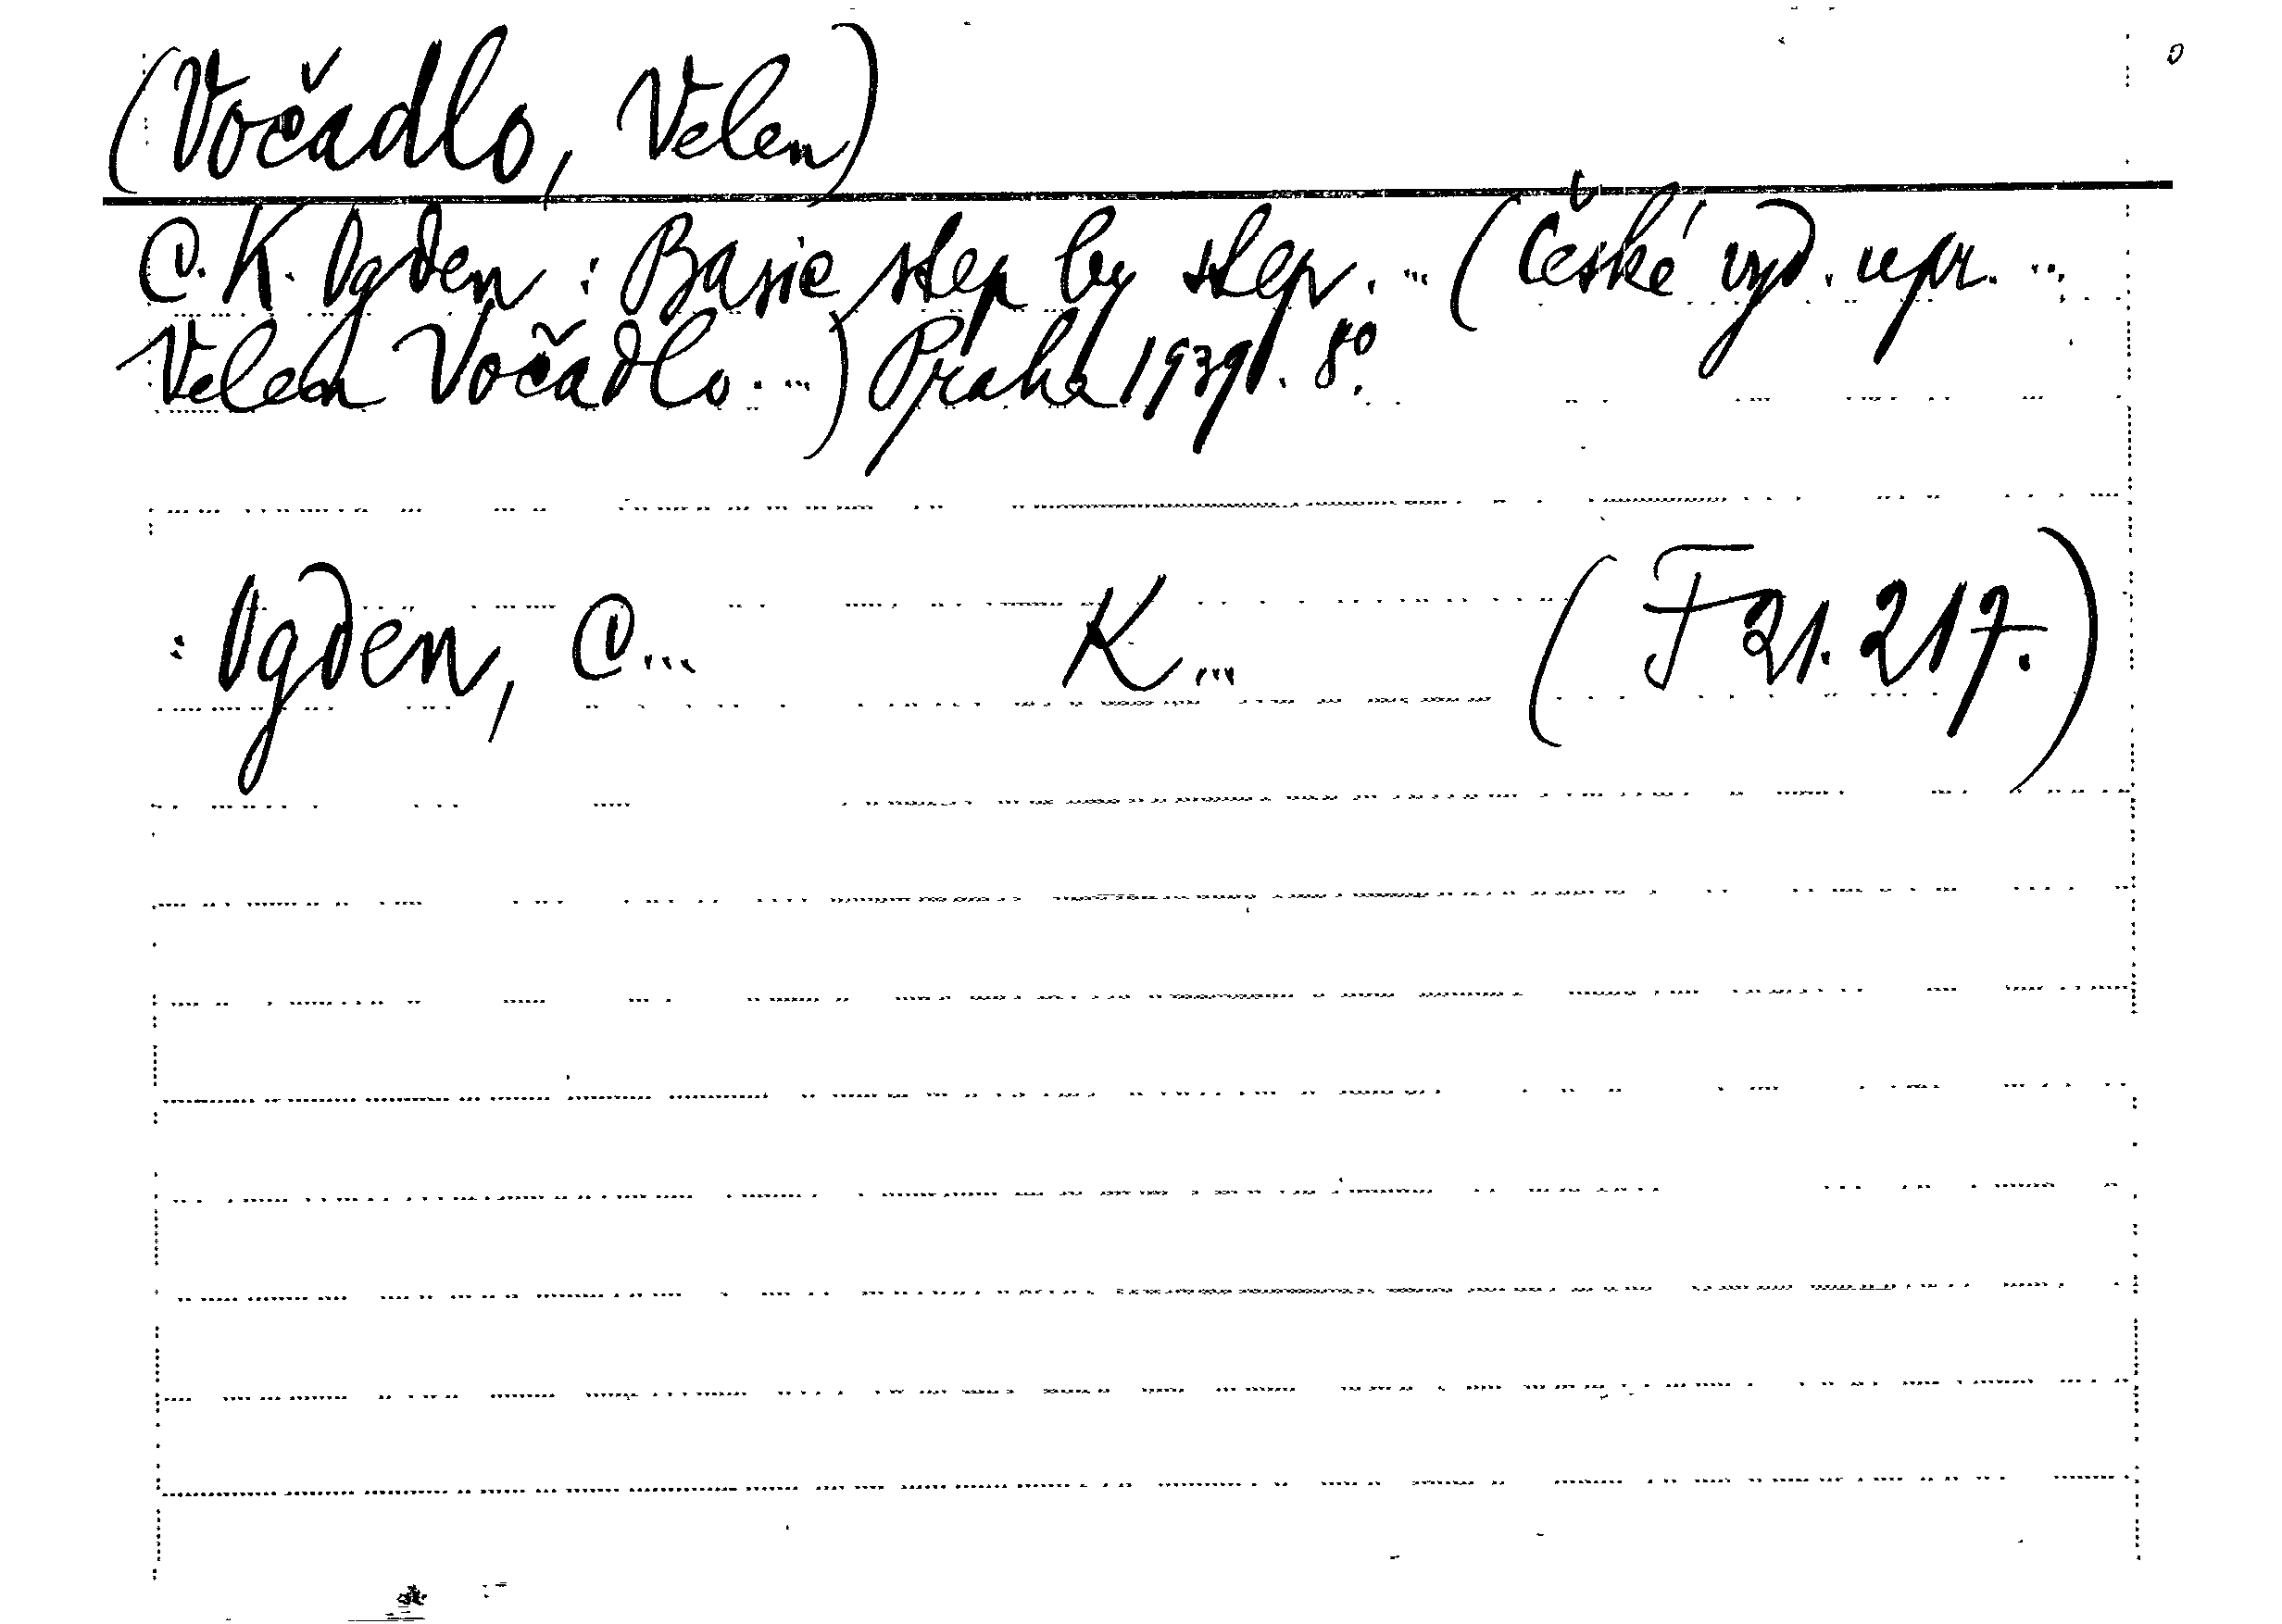 (Vočadlo, Velen)
C. K. Ogden : Basic step by step. ... (České vyd. upr. ...
Velen Vočadlo. ...) Praha 1939. 8°.
: Ogden, C... K... (F 21. 217.)